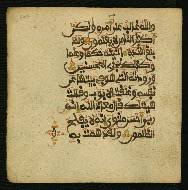 والله غالب على أمره ولكن
أكثر الناس لا يعلمون ولما
بلغ أشده ءاتينه حكما وعلما
وكذلك نجزي المحسنين
ورودته التي هو في بيتها عن
نفسه وغلقت الأبوب وقالت
هيت لك قال معاذ الله إنه
ربي أحسن مثواي إنه لا يفلح
الظلمون ولقد همت به